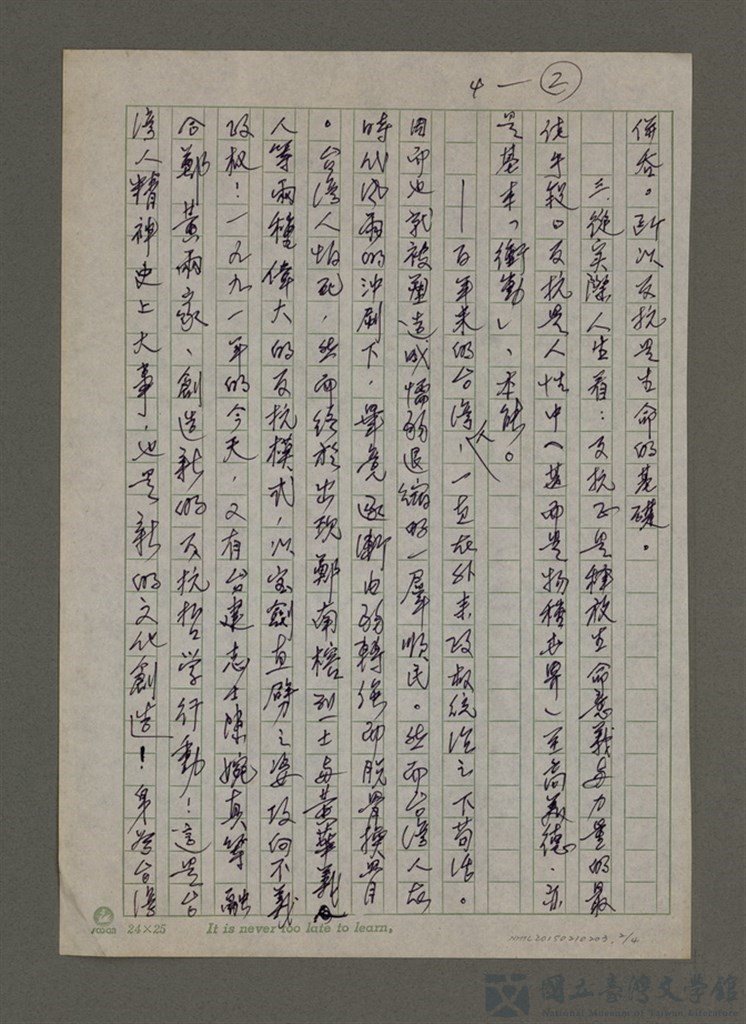 4－②
併吞。所以反抗是生命的基礎。
三.從实際人生看：反抗正是種族生命意義与力量的最
佳手段。反抗是人性中（甚而是物種世界）至高美德.亦
是基本「衝動」、本能。
——百年来的台湾人，一直在外来政权統治之下苟活。
因而也就被塑造成懦弱退縮的一羣順民。然而台湾人在
時代風雨的沖刷下，畢竟逐漸由弱轉強而脫胃換骨
。台湾人怕死，然而終於出現鄭南榕烈士与黃華義
人等兩種偉大的反抗模式，以宝劍直劈之姿攻向不義
政权！一九九一年的今天，又有台建志士陳婉真等融
合鄭黃兩家、創造新的反抗哲学行動！這是台
湾人精神史上大事，也是新的文化創造！身為台湾
24×25
It is never too late to learn.
NMTL20150210203, 2/4
國立臺灣文學館
National Museum of Taiwan Literature